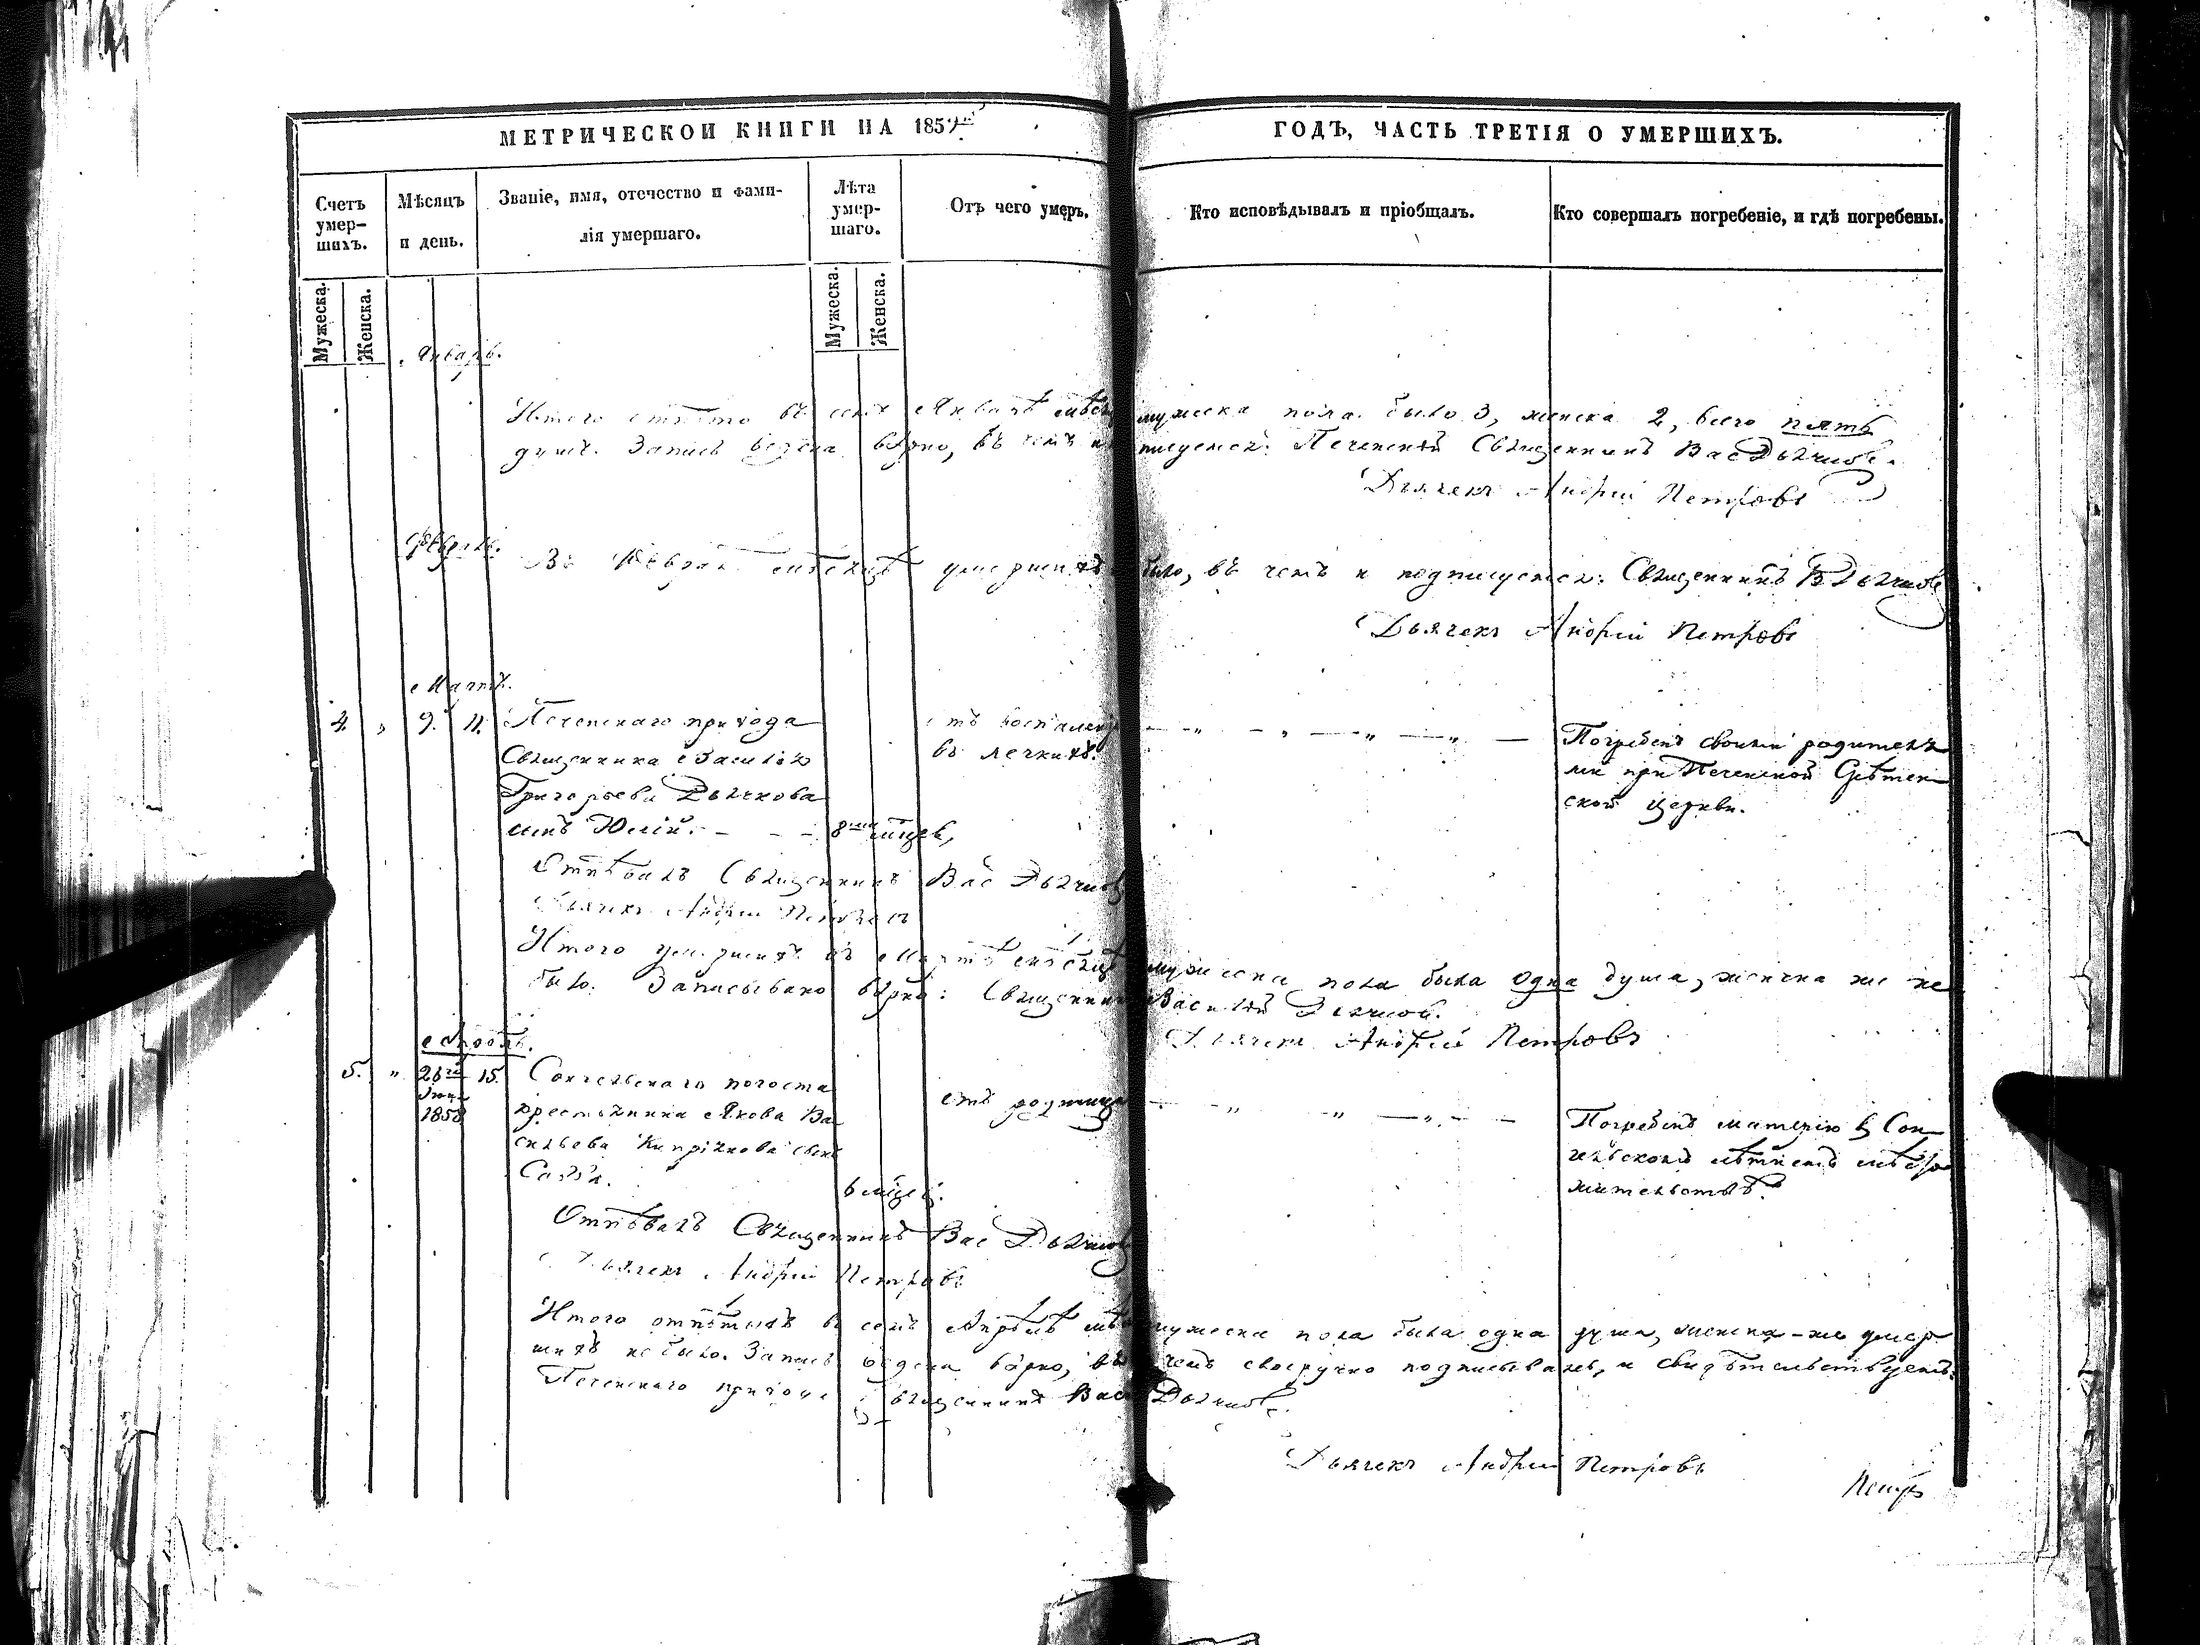 МЕТРИЧЕСКОЙ КНИГИ НА 1859й
ГОДЪ, ЧАСТЬ ТРЕТІЯ О УМЕРШИХЪ.
Счетъ умер-
шихъ.
Мѣсяцъ
и день.
Званіе, имя, отечество и фами-
лія умершаго.
Лѣта
умер-
шаго.
Отъ чего умеръ.
Кто исповѣдывалъ и пріобщалъ.
Кто совершалъ погребеніе, и гдѣ погребены.
Мужеска.
Женска.
Мужеска.
Женска.
Январь.
Итого отпѣто въ семъ Январѣ мужеска пола было 3, женска 2, всего пять
душъ. Запись ведена вѣрно, въ чемъ и Печенскій Священникъ Вас Дьячков
Дьячекъ Андрей Петровъ
Февраль.
Въ Февралѣ мѣсяцѣ умершихъ было, въ чемъ и подписуемся: Священникъ В Дьячков
Дьячекъ Андрей Петровъ
Мартъ.
4. " 9. 11. Печенскаго прихода
Священника Василія
Григорьева Дьячкова
сынъ Юлій. 8 мцев,
въ легкихъ.
Погребенъ своими родителя
ми при Печенской Срѣтен
ской церкви.
Отпѣвалъ Священникъ Вас Дьячков
Дьячекъ Андрей Петровъ
Итого умершихъ въ Мартѣ мѣсяцѣ мужеска пола была одна душа, женска же не
было. Записывано вѣрно: Священникъ Василій Дьячков.
Дьячекъ Андрей Петровъ
Апрѣль.
5. " 26го 15.
1858
погоста
крестьянина Якова Ва
сильева сынъ
Савва. 6 мцей.
отъ родимца
Погребенъ матерію въ Сон
гельскомъ лѣтнемъ мѣсто
жительствѣ.
Отпѣвалъ Священникъ Вас Дьячков
Дьячекъ Андрей Петровъ
Итого отпѣтыхъ въ семъ Апрѣлѣ мужеска пола была одна душа, женска-же умер
шихъ не было. Запись ведена вѣрно, въ чемъ своеручно подписываясь, и свидѣтельствуемъ:
Печенскаго прихода Священникъ Вас Дьячков.
Дьячекъ Андрей Петровъ